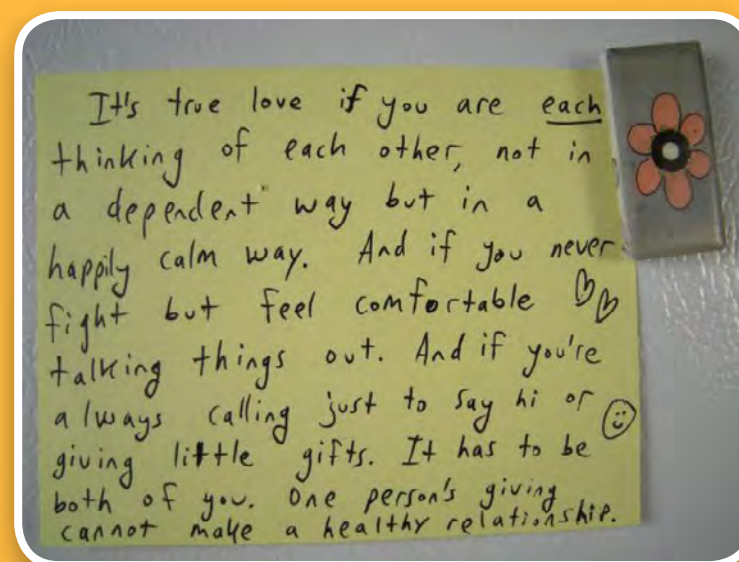 It's true love if you are each
thinking of each other, not in
a dependent way but in a
happily calm way. And if you never
fight but feel comfortable
talking things out. And if you're
always calling just to say hi or
giving little gifts. It has to be
both of you. One person's giving
cannot make a healthy relationship.